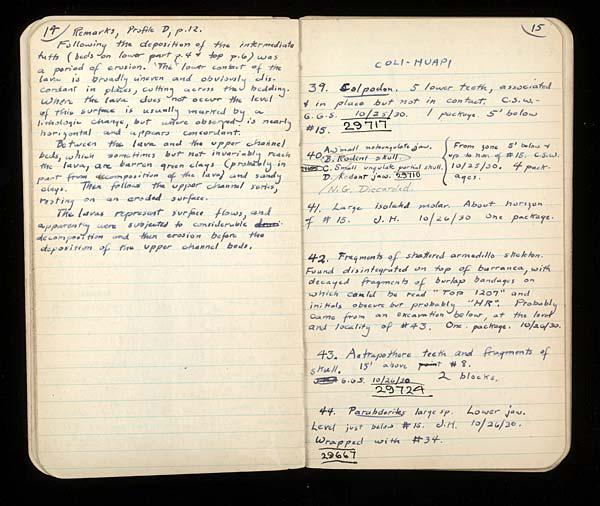 14 Remarks, Profile D, p.12.
Following the deposition of the intermediate
tuffs (beds on lower part p.4 & top p.6) was
a period of erosion. The lower contact of the
lava is broadly uneven and obviously dis-
cordant in places, cutting across the bedding.
Where the lava does not occur the level
of this surface is usually marked by a
lithologic change, but where observed is nearly
horizontal and appears concordant.
Between the lava and the upper channel
beds, which sometimes but not invariably reach
the lava, are barren green clays (probably in
part from decomposition of the lava) and sandy
clays. Then follows the upper channel series,
resting on an eroded surface.
The lavas represent surface flows, and
apparently were subjected to considerable
decomposition and then erosion before the
deposition of the upper channel beds.
15
COLI-HUAPI
39. Colpodon. 5 lower teeth, associated
& in place but not in contact. C.S.W.-
G.G.S. 10/25/30. 1 package 5' below
#15. 29717
40. A. Small notoungulate jaw.
B. Rodent skull
C. Small ungulate partial skull.
D. Rodent jaw. 29710
N.G. Discarded.
From zone 5' below &
up to horiz. of #15. C.S.W.
10/25/30. 4 pack-
ages.
41. Large isolated molar. About horizon
of #15. J.H. 10/26/30 One package.
42. Fragments of shattered armadillo skeleton.
Found disintegrated on top of barranca, with
decayed fragments of burlap bandages on
which could be read "Top 1207" and
initials obscure but probably "HR". Probably
came from an excavation below, at the level
and locality of #43. One package. 10/26/30.
43. Astrapothere teeth and fragments of
skull. 15' above #8.
G.G.S. 10/26/30 2 blocks.
29724
44. Parabderites large sp. Lower jaw.
Level just below #15. J.H. 10/26/30.
Wrapped with #34.
29667